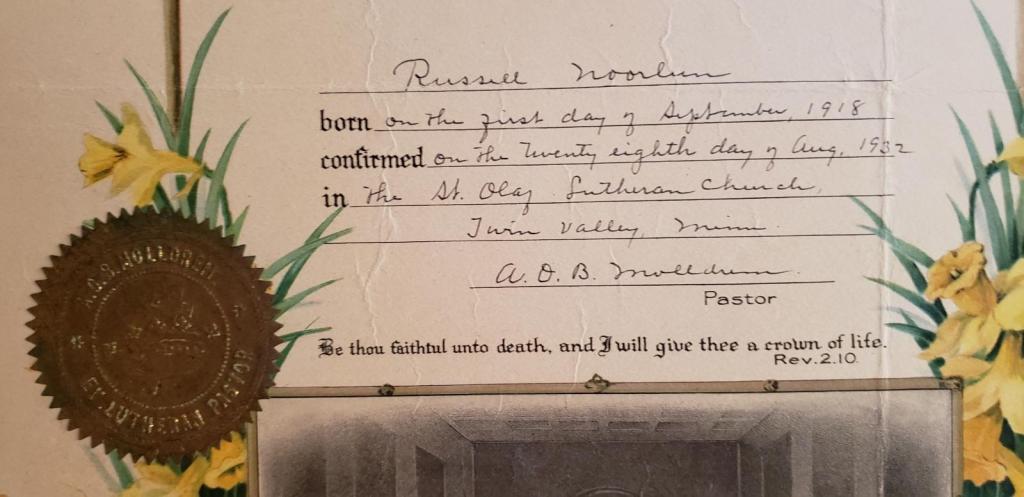 Russell Noorlun
born on the first day of September, 1918
confirmed on the Twenty eighth day of Aug, 1932
in the St. Olaf Lutheran Church,
Twin Valley, Minn.
A. O. B. Molldrem.
Pastor
Be thou faithful unto death, and I will give thee a crown of life.
Rev. 2.10.
A.O.B. MOLLDREM
EV. LUTHERAN PASTOR